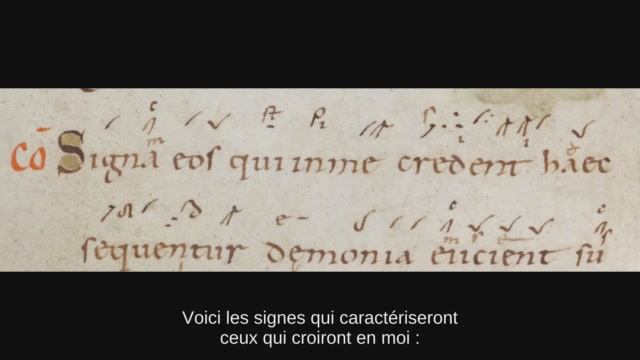 Cō Signa eos qui in me credent haec
sequentur demonia eicient su
Voici les signes qui caractériseront
ceux qui croiront en moi :